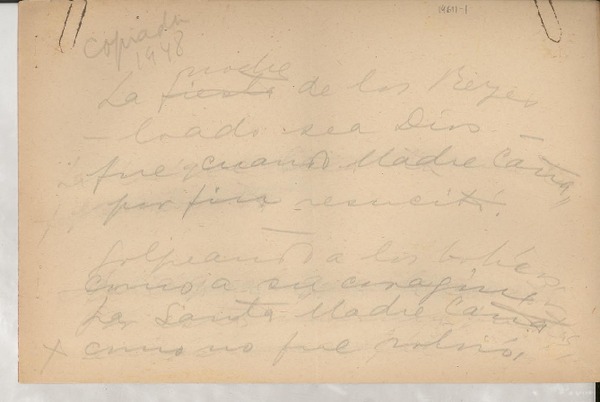 14611-1
copiada
1948
noche
La fiesta de los Reyes
– loado sea Dios –
fue cuando Madre Caña,
por fin resucitó.
Golpeando a los bohíos
como a su corazón
La Santa Madre Caña
x como no fue volvió,